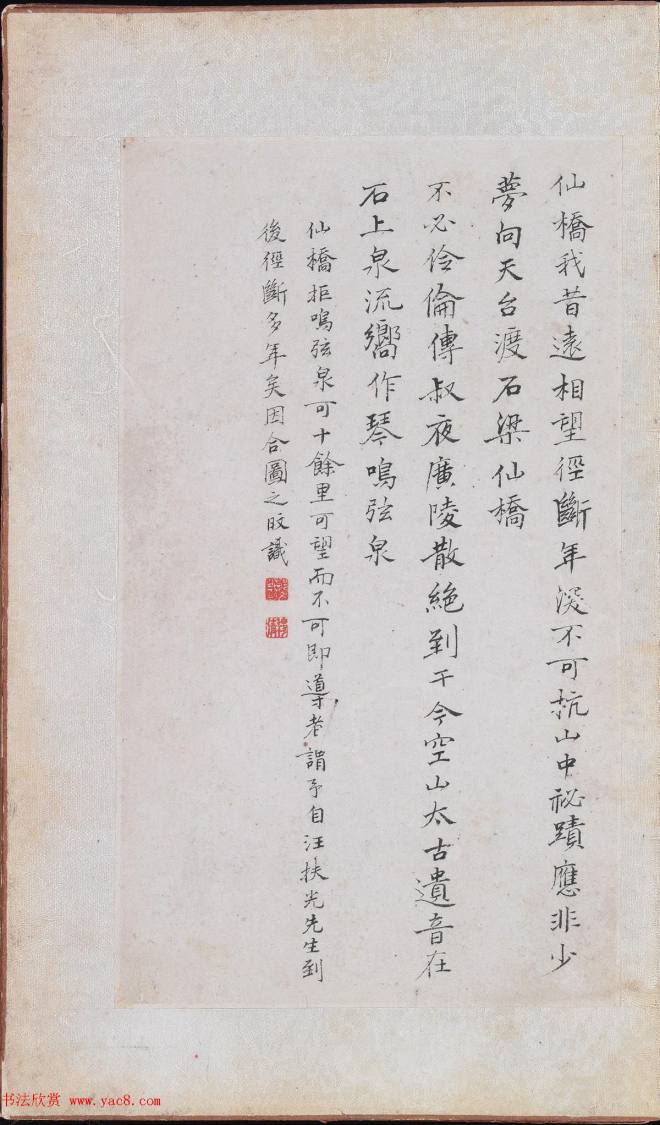 仙橋我昔遠相望徑斷年深不可杭山中祕蹟應非少
夢向天台渡石梁仙橋
不必伶倫傳叔夜廣陵散絕到于今空山太古遺音在
石上泉流嚮作琴鳴弦泉
仙橋拒鳴弦泉可十餘里可望而不可即導者謂予自汪扶光先生到
後徑斷多年矣因合圖之旼識
书法欣赏 www.yac8.com